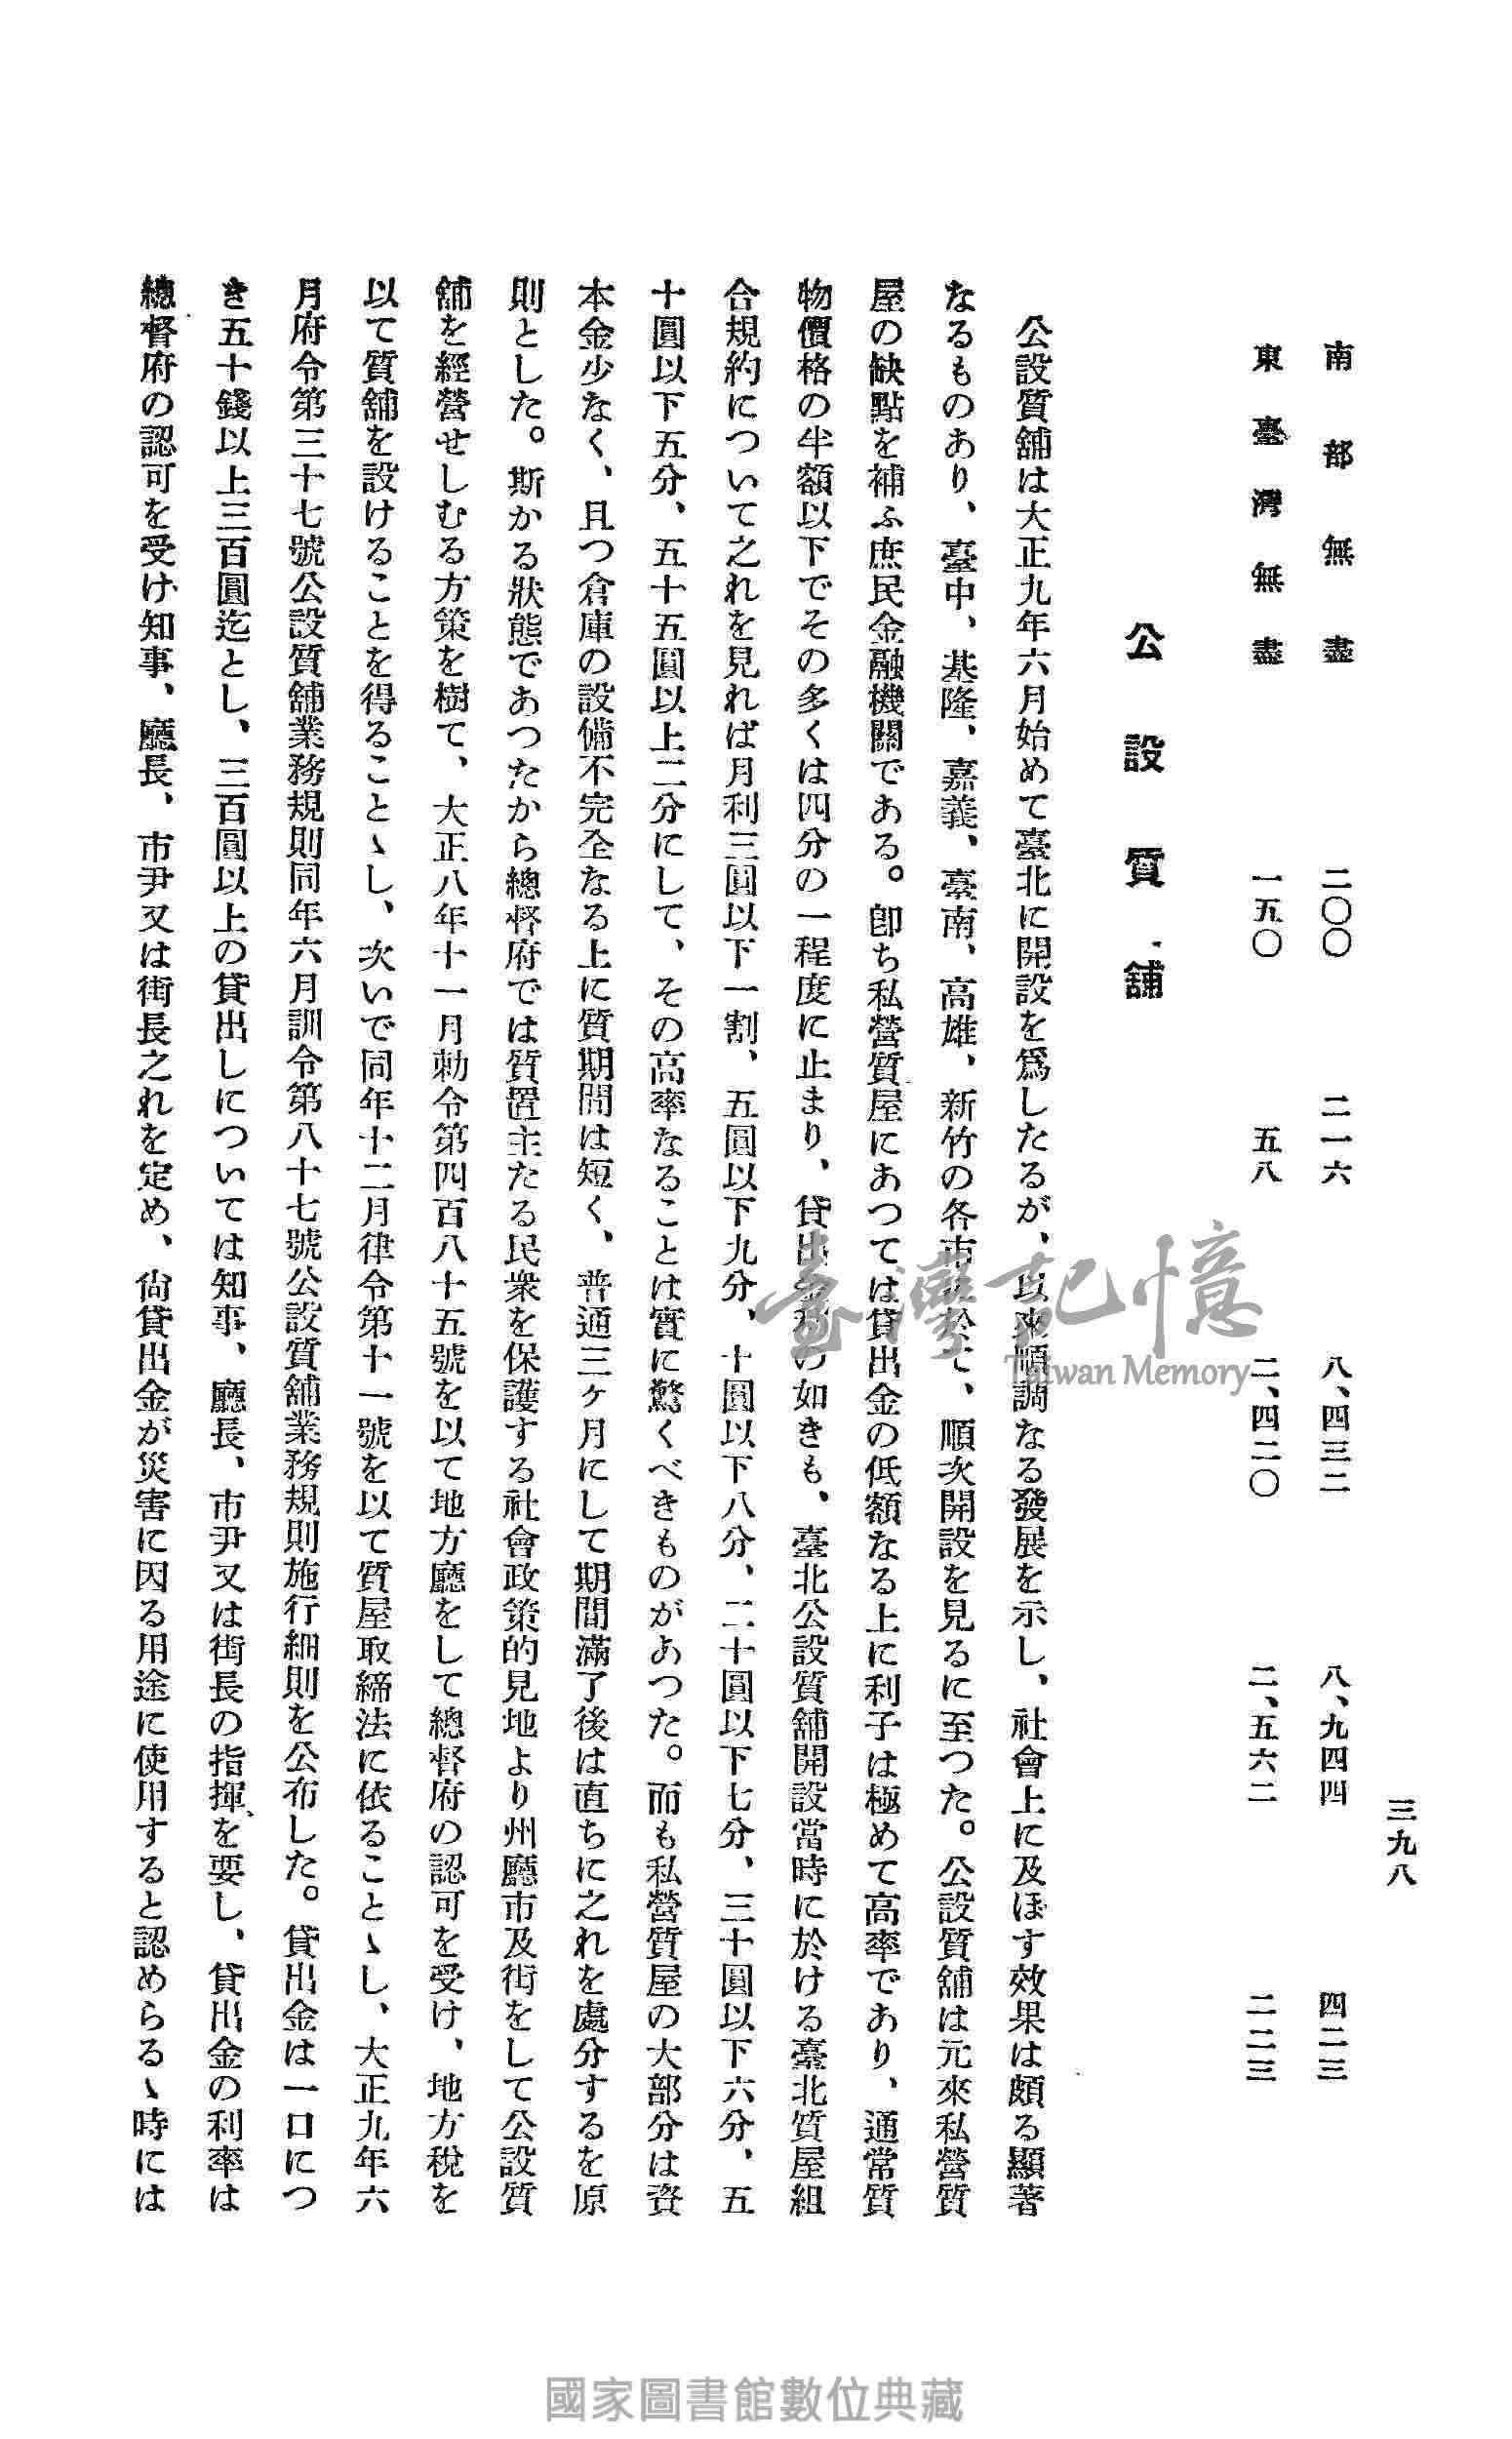 三九八
南部無盡 二〇〇 二一六 八、四三二 八、九四四 四二三
東臺灣無盡 一五〇 五八 二、四二〇 二、五六二 二二三
公設質舖
公設質舖は大正九年六月始めて臺北に開設を爲したるが、以來順調なる發展を示し、社會上に及ぼす效果は頗る顯著
なるものあり、臺中、基隆、嘉義、臺南、高雄、新竹の各市に於て、順次開設を見るに至つた。公設質舖は元來私營質
屋の缺點を補ふ庶民金融機關である。卽ち私營質屋にあつては貸出金の低額なる上に利子は極めて高率であり、通常質
物價格の半額以下でその多くは四分の一程度に止まり、貸出金利の如きも、臺北公設質舖開設當時に於ける臺北質屋組
合規約について之れを見れば月利三圓以下一割、五圓以下九分、十圓以下八分、二十圓以下七分、三十圓以下六分、五
十圓以下五分、五十五圓以上二分にして、その高率なることは實に驚くべきものがあつた。而も私營質屋の大部分は資
本金少なく、且つ倉庫の設備不完全なる上に質期間は短く、普通三ヶ月にして期間滿了後は直ちに之れを處分するを原
則とした。斯かる狀態であつたから總督府では質置主たる民衆を保護する社會政策的見地より州廳市及街をして公設質
舖を經營せしむる方策を樹て、大正八年十一月勅令第四百八十五號を以て地方廳をして總督府の認可を受け、地方稅を
以て質舖を設けることを得ることゝし、次いで同年十二月律令第十一號を以て質屋取締法に依ることゝし、大正九年六
月府令第三十七號公設質舖業務規則同年六月訓令第八十七號公設質舖業務規則施行細則を公布した。貸出金は一口につ
き五十錢以上三百圓迄とし、三百圓以上の貸出しについては知事、廳長、市尹又は街長の指揮を要し、貸出金の利率は
總督府の認可を受け知事、廳長、市尹又は街長之れを定め、尙貸出金が災害に因る用途に使用すると認めらるゝ時には
臺灣記憶
Taiwan Memory
國家圖書館數位典藏